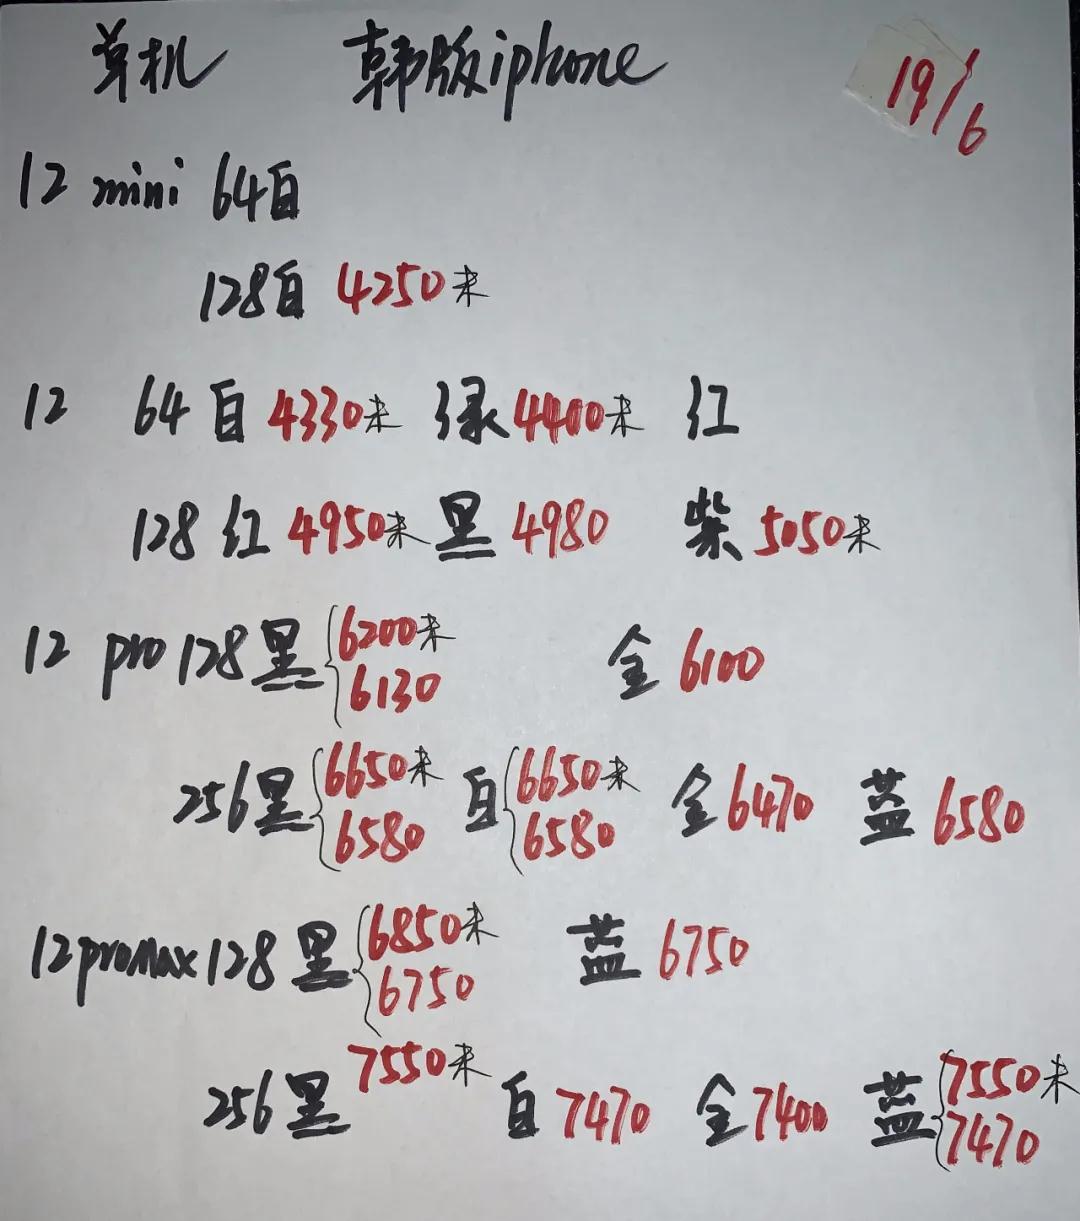 单机 韩版iphone 19/6
12 mini 64白
128白 4250未
12 64白 4330未 绿 4400未 红
128 红 4950未 黑 4980 紫 5050未
12 pro 128 黑 6200未 金 6100
6130
256 黑 6650未 白 6650未 金 6470 蓝 6580
6580 6580
12promax 128 黑 6850未 蓝 6750
6750
256 黑 7550未 白 7470 金 7400 蓝 7550未
7470